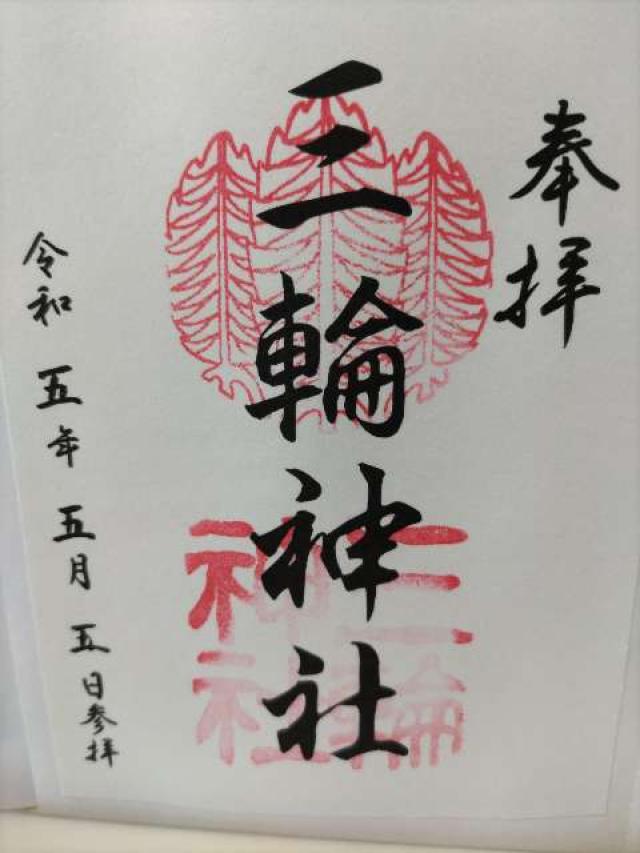 奉拝
三輪神社
三輪
神社
令和五年五月五日参拝